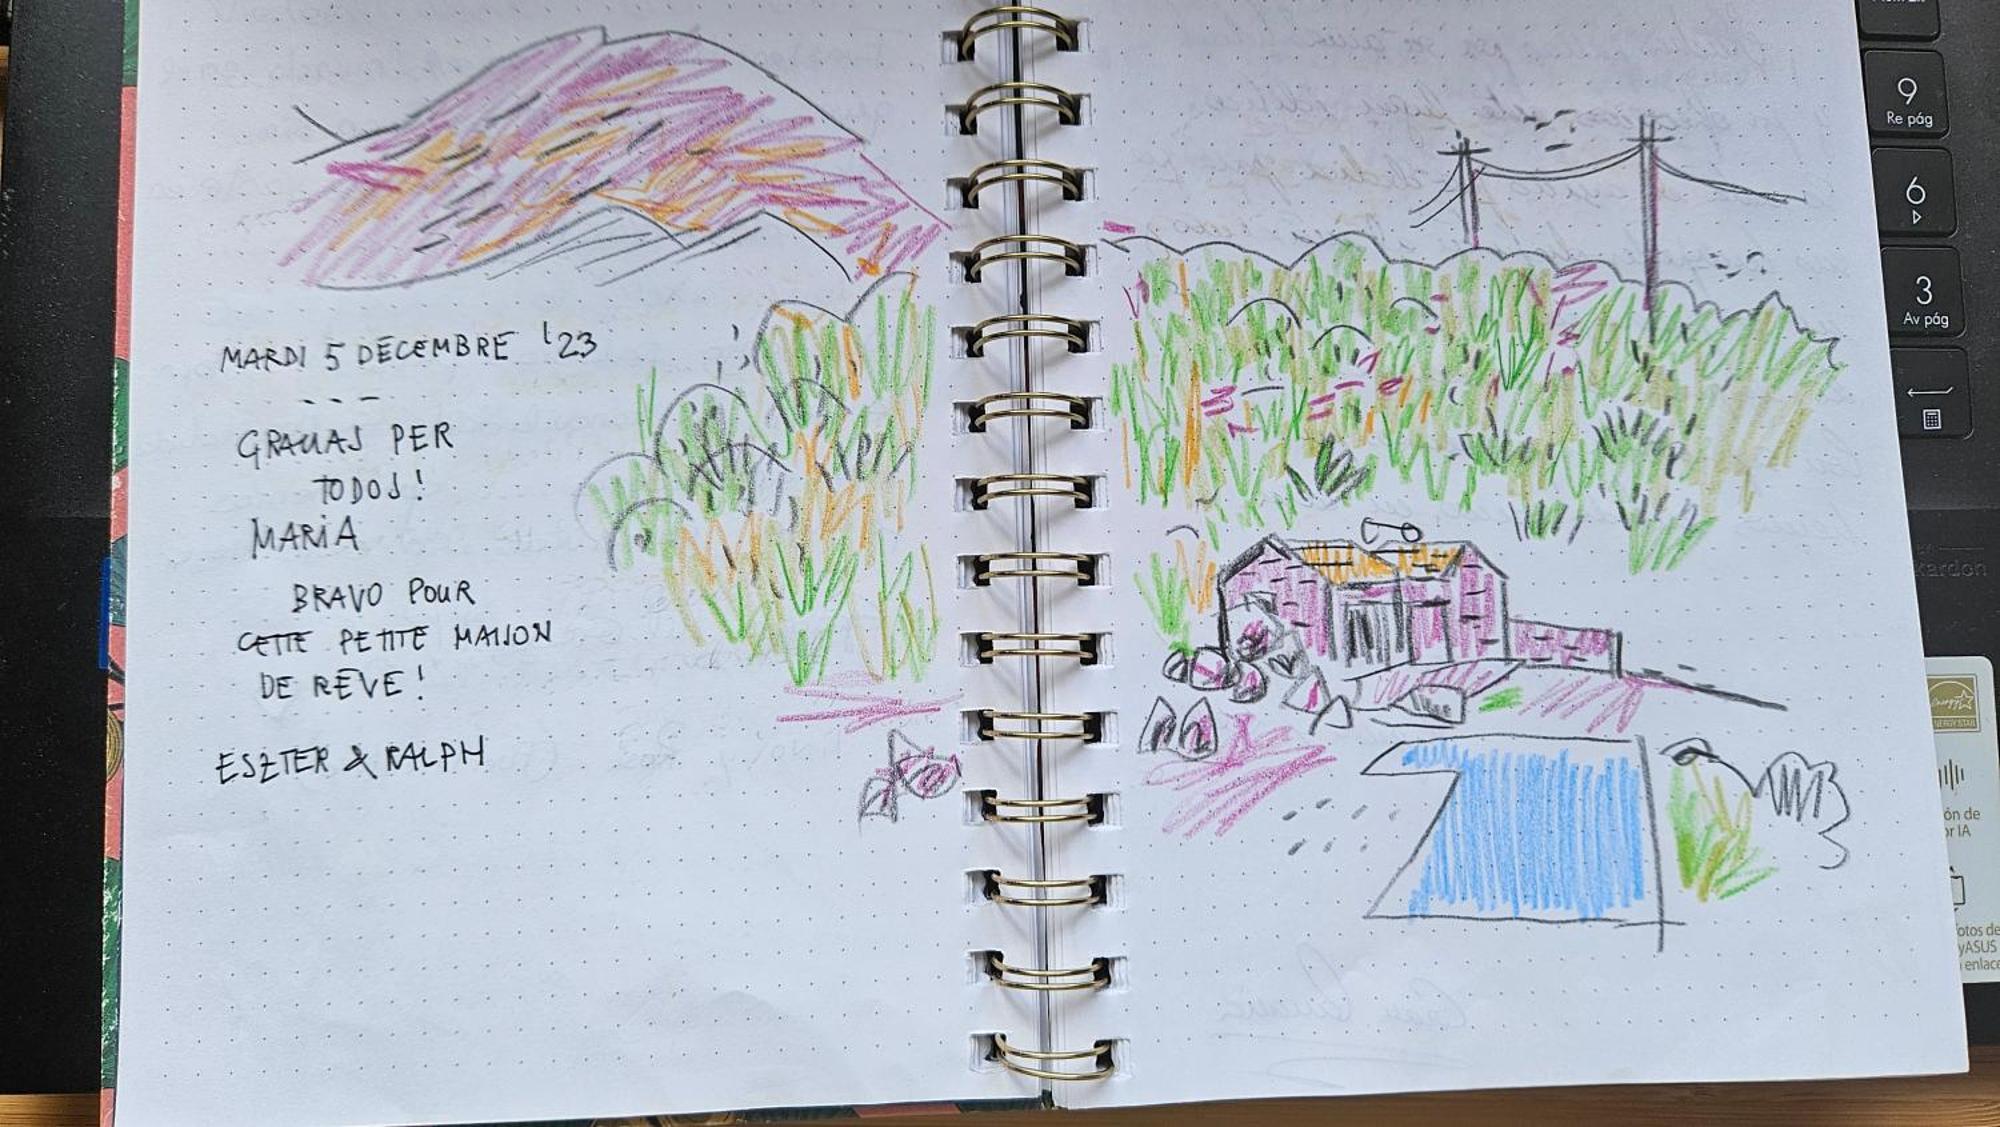 MARDI 5 DECEMBRE '23
- - -
GRACIAS PER
TODOS!
MARIA
BRAVO POUR
CETTE PETITE MAISON
DE RÊVE!
ESZTER & RALPH
9
Re pág
6
3
Av pág
kardon
energy
ENERGY STAR
ón de
or IA
fotos de
yASUS
enlace